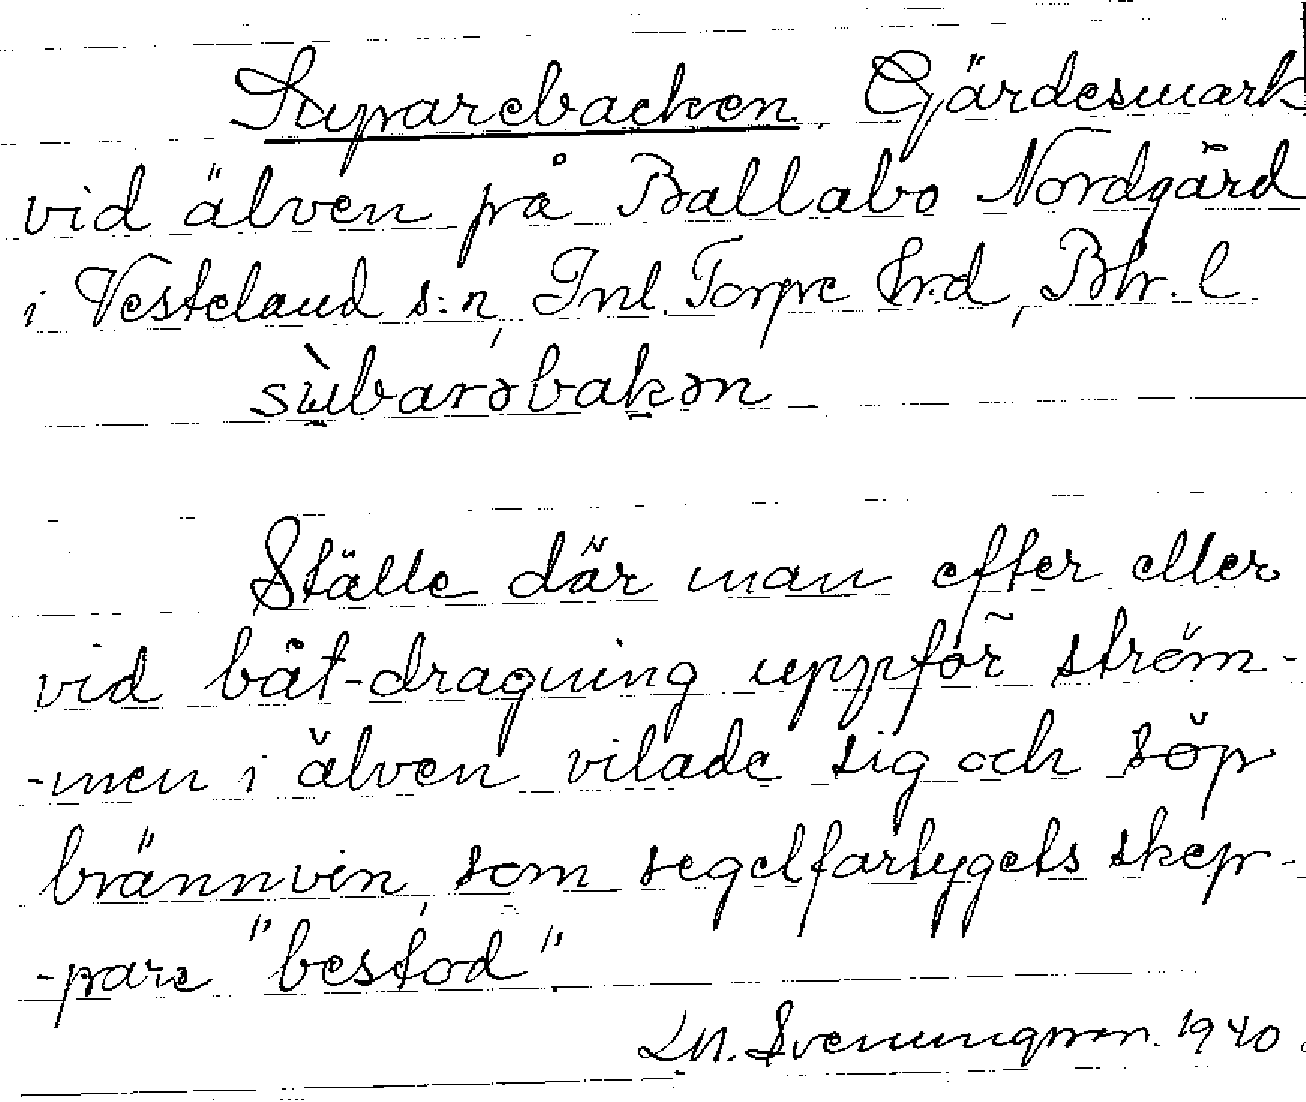 Suparebacken. Gärdesmark
vid älven på Ballabo Nordgård
i Vesteland s:n, Inl. Torpe hrd, Bhr. l.
sùbarəbakən
Ställe där man efter eller
vid båt-dragning uppför ström-
-men i älven vilade sig och söp
brännvin, som segelfartygets skep-
-pare "bestod".
Ln. Svenungsson. 1940.